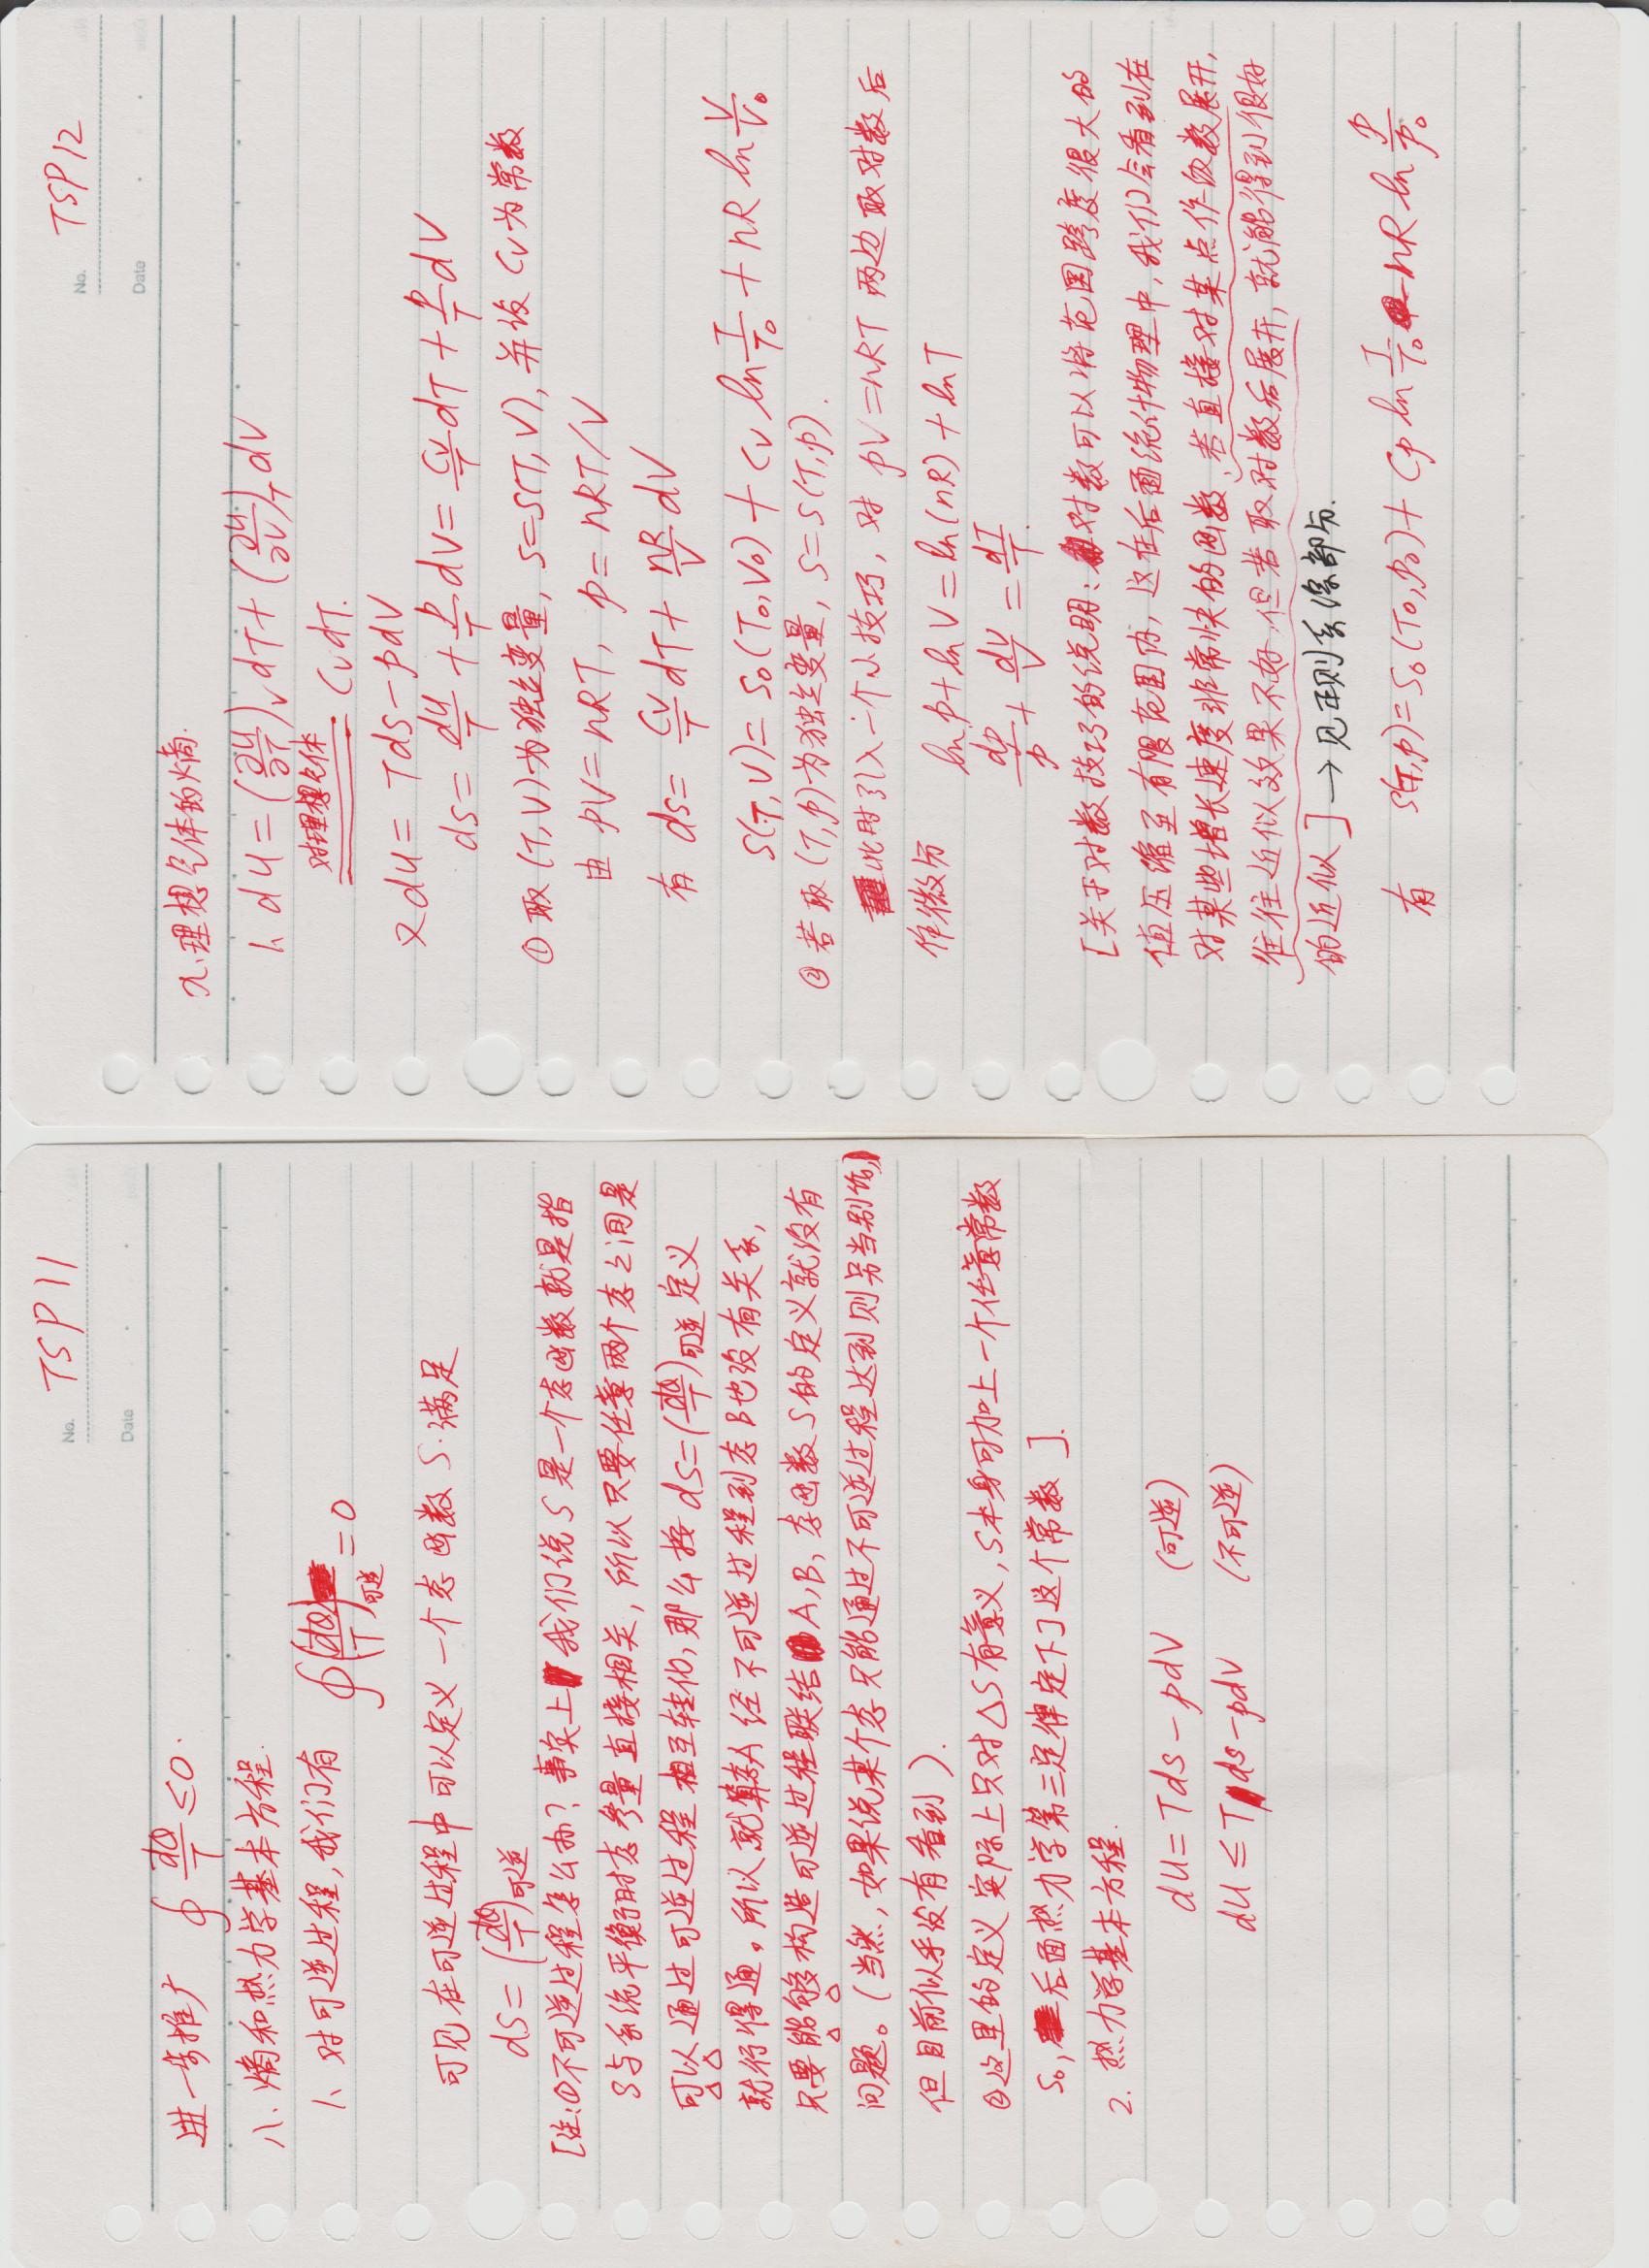 No. TSP 11
Date
进一步推广 ∮ đQ/T ≤ 0.
八、熵和热力学基本方程.
1、对可逆过程, 我们有 ∮(đQ/T)可逆 = 0
可见在可逆过程中可以定义一个态函数 S. 满足
dS = (đQ/T)可逆
[注:①不可逆过程怎么办? 事实上我们说 S 是一个态函数就是指
S与系统平衡时态参量直接相关, 所以只要任意两个态之间是
可以通过可逆过程相互转化, 那么按 dS=(đQ/T)可逆 定义
就行得通。所以就算态A 经不可逆过程到态B也没有关系,
只要能够构造可逆过程联结 A, B, 态函数 S 的定义就没有
问题。(当然, 如果说某个态只能通过不可逆过程达到则另当别论,
但目前似乎没有看到).
②这里的定义实际上只对 △S 有意义, S本身可加上一个任意常数
S₀, 后面热力学第三定律定下了这个常数].
2. 热力学基本方程.
dU = TdS - pdV (可逆)
dU ≤ TdS - pdV (不可逆)
No. TSP 12
Date
九.理想气体的熵.
1、dU = (∂U/∂T)_V dT + (∂U/∂V)_T dV
对理想气体
═══ C_V dT.
又 dU = TdS - pdV
dS = dU/T + p/T dV = C_V/T dT + p/T dV
① 取 (T, V) 为独立变量, S=S(T, V), 并设 C_V 为常数
由 pV = nRT, p = nRT/V
有 dS = C_V/T dT + nR/V dV
S(T, V) = S₀(T₀, V₀) + C_V ln T/T₀ + nR ln V/V₀
② 若取 (T, p) 为独立变量, S=S(T, p).
此时引入一个小技巧, 对 pV = nRT 两边取对数后
作微分 ln p + ln V = ln(nR) + ln T
dp/p + dV/V = dT/T.
[关于对数技巧的说明: 对数可以将范围跨度很大的
值压缩至有限范围内, 这在后面统计物理中, 我们会看到在
对某些增长速度非常快的函数、若直接对某点作级数展开,
往往近似效果不好, 但若取对数后展开, 就能得到很好
的近似] → 见正则系综部分.
有 S(T, p) = S₀(T₀, p₀) + C_p ln T/T₀ - nR ln p/p₀